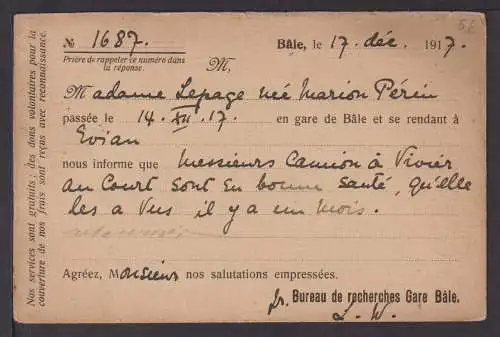 № 1687.
Bâle, le 17 déc. 1917.
Prière de rappeler ce numéro dans
la réponse.
M,
Madame Lepage née Marion Périn
passée le 14. XII. 17. en gare de Bâle et se rendant à
Evian
nous informe que Messieurs Camion à Vivier
au Court sont en bonne santé, qu'elle
les a vus il y a un mois.
Agréez, Monsieur nos salutations empressées.
pr. Bureau de recherches Gare Bâle.
L. W.
Nos services sont gratuits; des dons volontaires pour la
couverture de nos frais sont reçus avec reconnaissance.